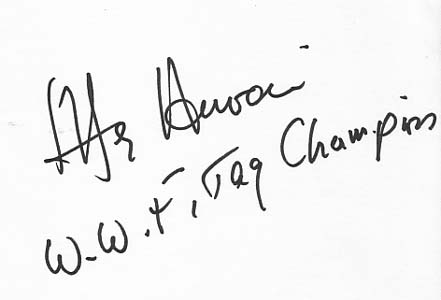 Afa Anoai
W.W.F, Tag Champions